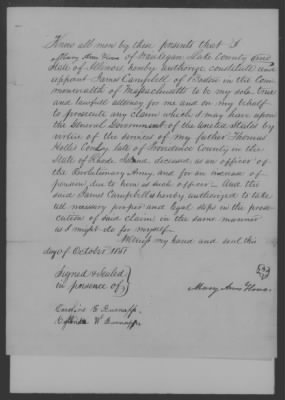 Know all men by these presents that I
Mary Ann of Waukegan Lake County and
State of Illinois hereby authorize constitute and
appoint James Campbell of Boston in the Com-
monwealth of Massachusetts to be my sole true
and lawfull attorney for me and on my behalf
to prosecute any claim which I may have upon
the General Government of the United States by
virtue of the services of my father Thomas
Hollis late of Providence County in the
State of Rhode Island deceased as an officer of
the Revolutionary Army and for an increase of
pension due to him as such officer - And the
said James Campbell is hereby authorized to take
all necessary proper and legal steps in the prose-
cution of said claim in the same manner
as I might do for myself.
Witness my hand and seal this
day of October 1851
Signed & Sealed
in presence of
Mary Ann
Caroline E. Burnapp
W Burnapp